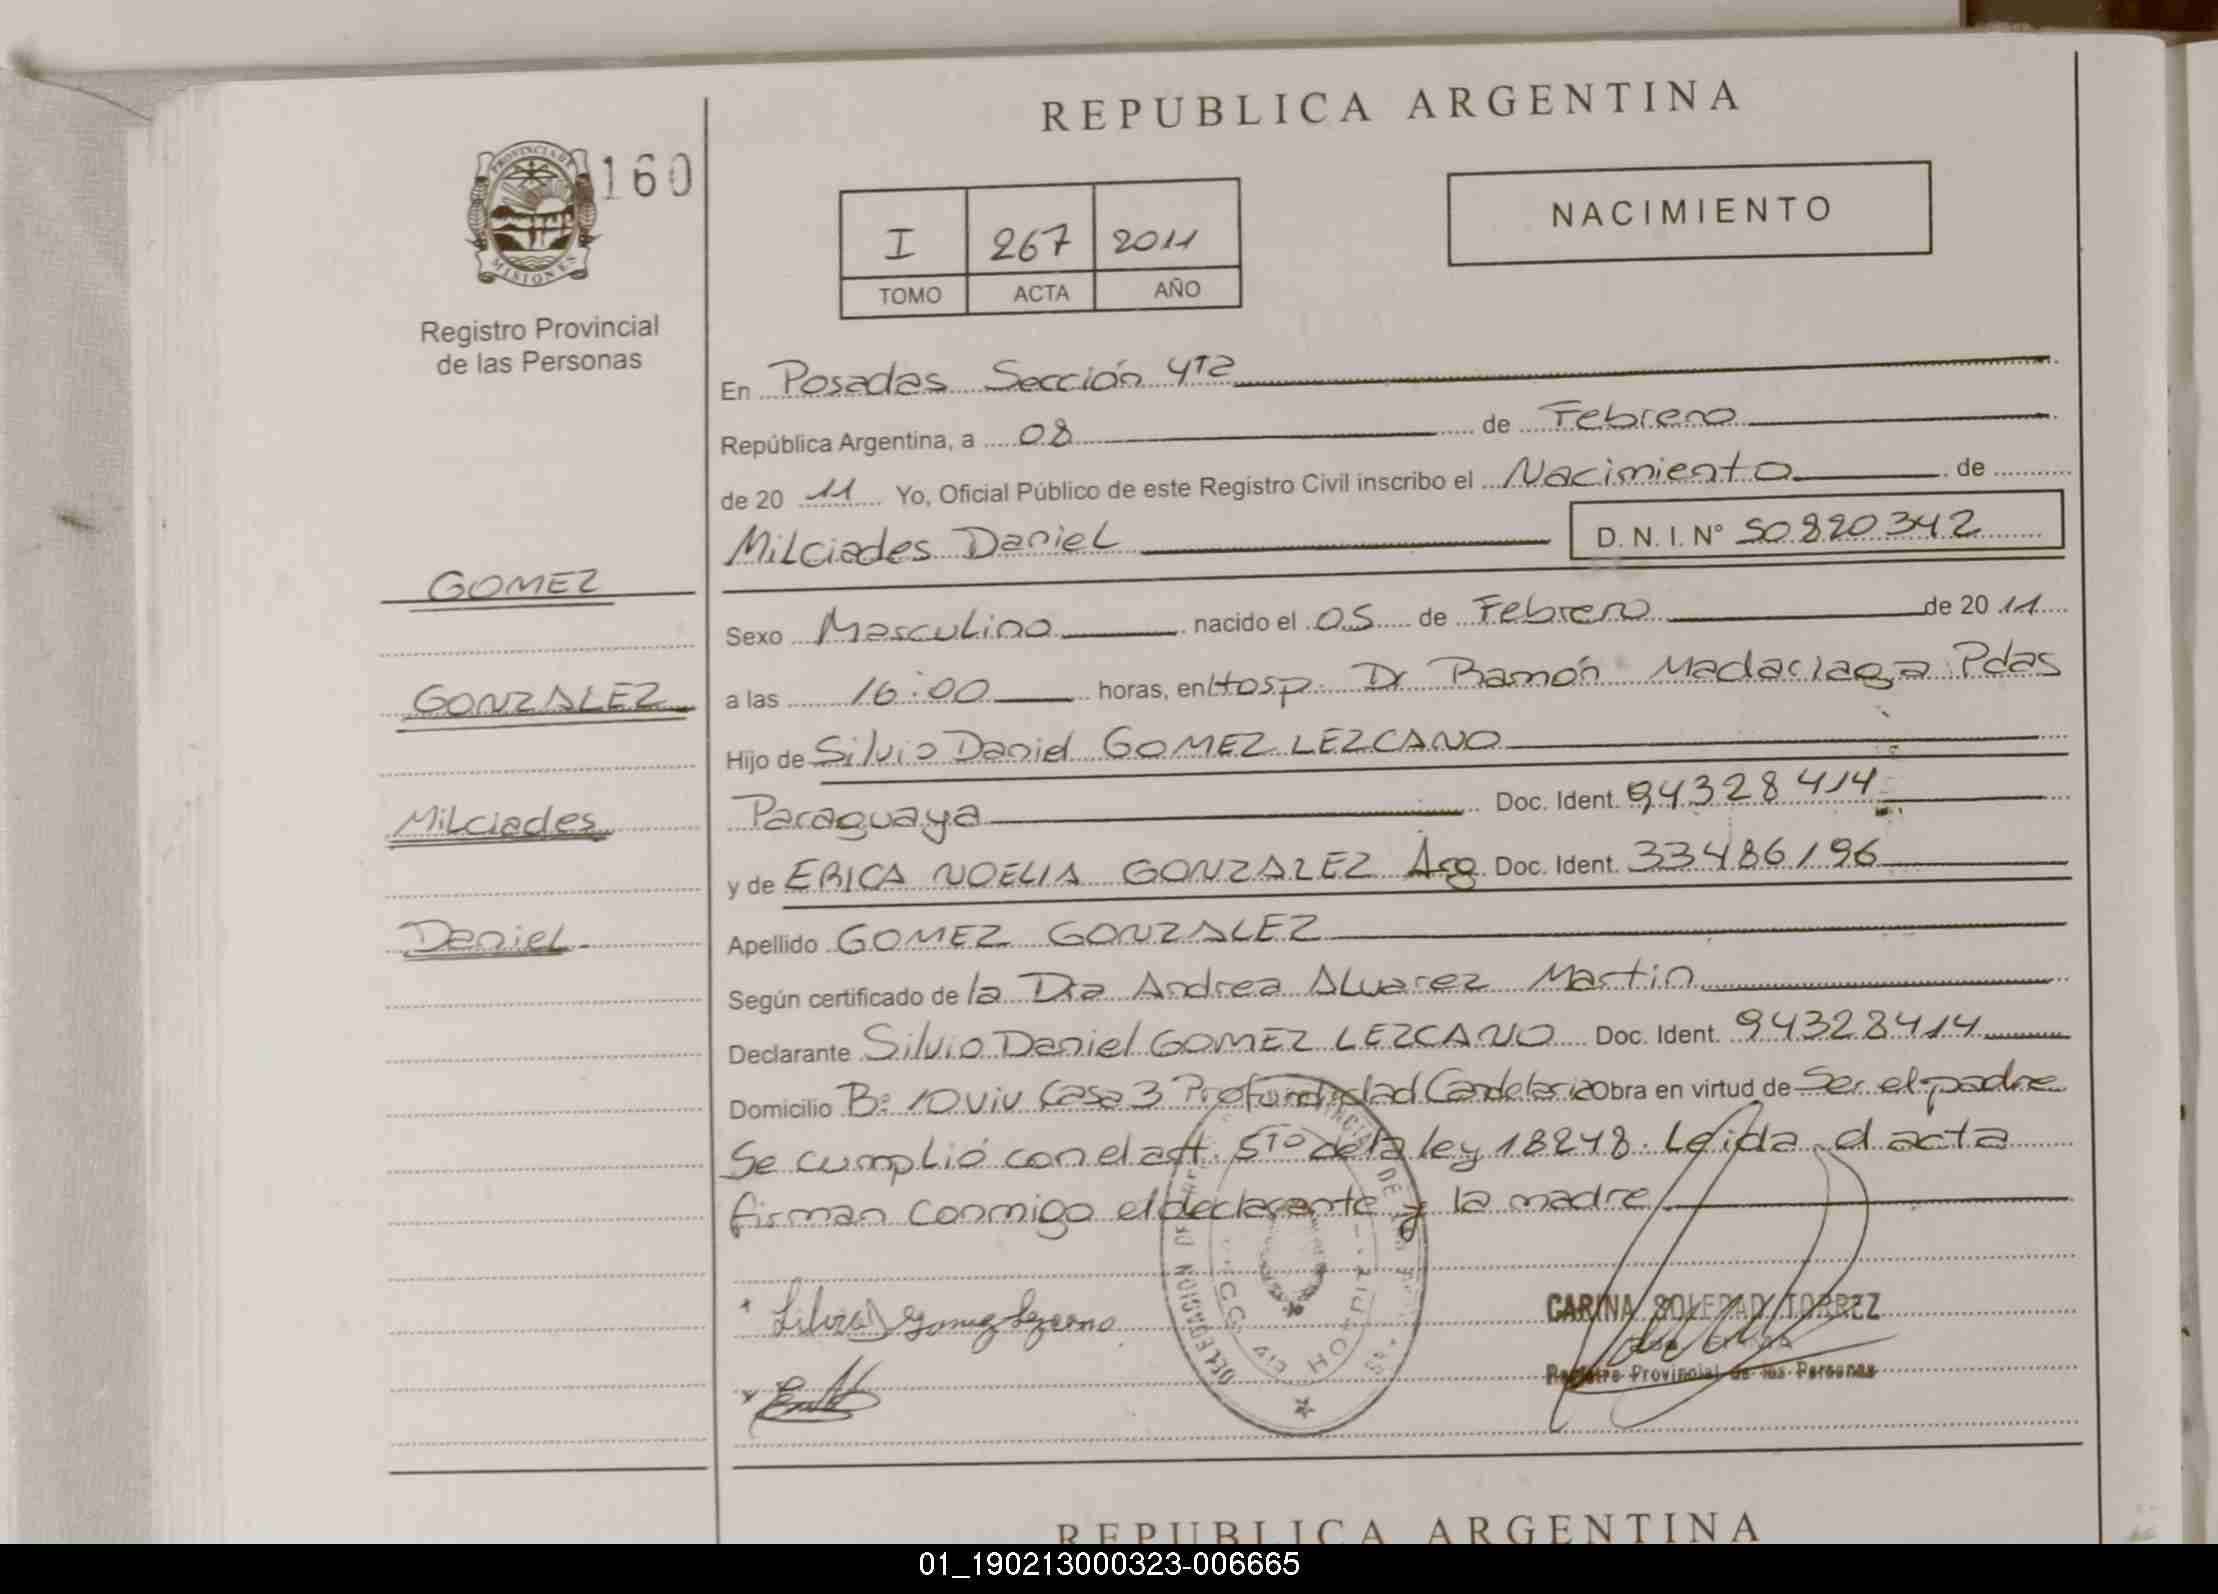 REPUBLICA ARGENTINA
PROVINCIA DE
MISIONES
160
Registro Provincial
de las Personas
I 267 2011
TOMO ACTA AÑO
NACIMIENTO
En Posadas Sección 4ta
República Argentina, a 08 de Febrero
de 20 11 Yo, Oficial Público de este Registro Civil inscribo el Nacimiento de
Milciades Daniel D. N. I. Nº 50820342
GOMEZ
GONZALEZ
Milciades
Daniel
Sexo Masculino nacido el 05 de Febrero de 20 11
a las 16:00 horas, en Hosp. Dr Ramón Madariaga Pdas
Hijo de Silvio Daniel GOMEZ LEZCANO
Paraguaya Doc. Ident. 94328414
y de ERICA NOELIA GONZALEZ Arg. Doc. Ident. 33486196
Apellido GOMEZ GONZALEZ
Según certificado de la Dra Andrea Alvarez Martin
Declarante Silvio Daniel GOMEZ LEZCANO Doc. Ident. 94328414
Domicilio Bº 10 viv Casa 3 Profundidad Candelaria Obra en virtud de Ser el padre
Se cumplió con el art. 5to de la ley 18248. Leida el acta
firman conmigo el declarante y la madre
Silvio D Gomez Lezcano
CARINA SOLEDAD TORREZ
Registro Provincial de las Personas
DELEGACION
REPUBLICA ARGENTINA
01_190213000323-006665